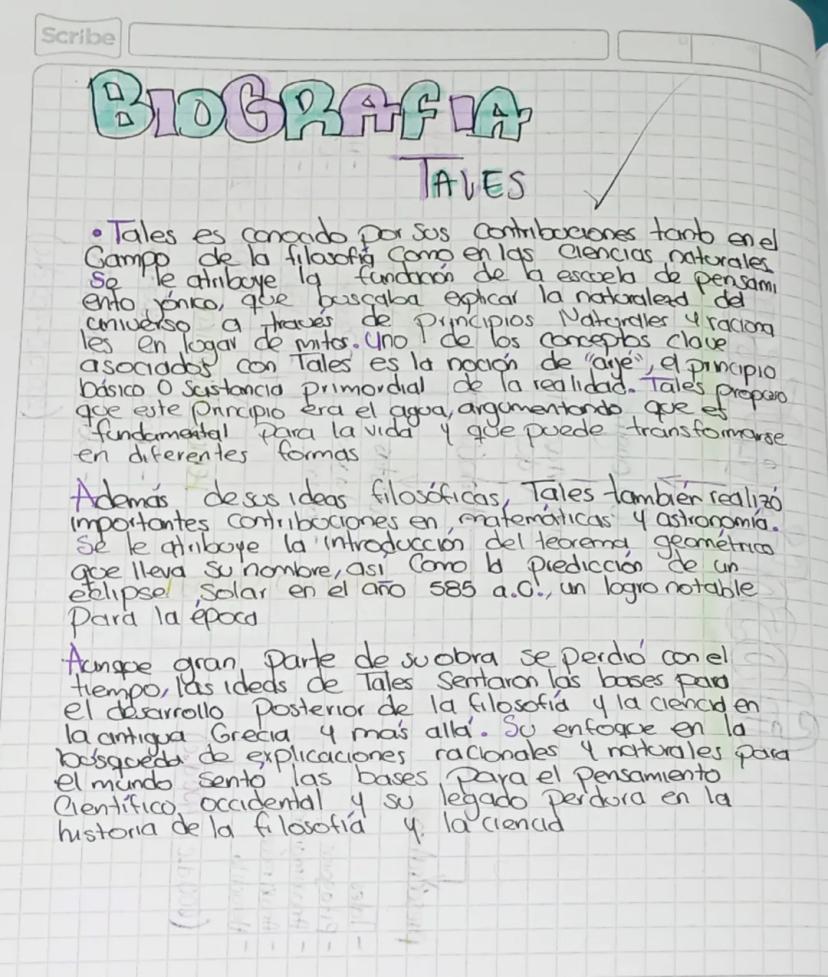 Scribe
BIOGRAFIA
TALES
• Tales es conocido por sus contribuciones tanto en el
Campo de la filosofía como en las ciencias naturales.
Se le atribuye la fundación de la escuela de pensami
ento jónico, que buscaba explicar la naturaleza del
universo a través de principios Naturales y raciona
les en lugar de mitos. Uno de los conceptos clave
asociados con Tales es la noción de "arjé", el principio
básico o sustancia primordial de la realidad. Tales propuso
que este principio era el agua, argumentando que es
fundamental para la vida y que puede transformarse
en diferentes formas
Además de sus ideas filosóficas, Tales también realizó
importantes contribuciones en matemáticas y astronomía.
Se le atribuye la introducción del teorema geométrico
que lleva su nombre, así como la predicción de un
eclipse solar en el año 585 a.C., un logro notable
para la época
Aunque gran parte de su obra se perdió con el
tiempo, las ideas de Tales sentaron las bases para
el desarrollo posterior de la filosofía y la ciencia en
la antigua Grecia y más allá. Su enfoque en la
búsqueda de explicaciones racionales y naturales para
el mundo sentó las bases para el pensamiento
Científico occidental y su legado perdura en la
historia de la filosofía y la ciencia